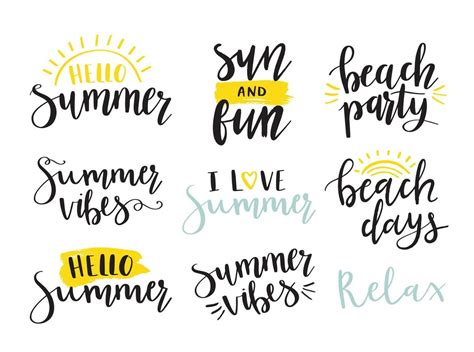 HELLO
Summer
sun
AND
fun
beach
party
Summer
vibes
I LOVE
Summer
beach
days
HELLO
Summer
Summer
vibes
Relax